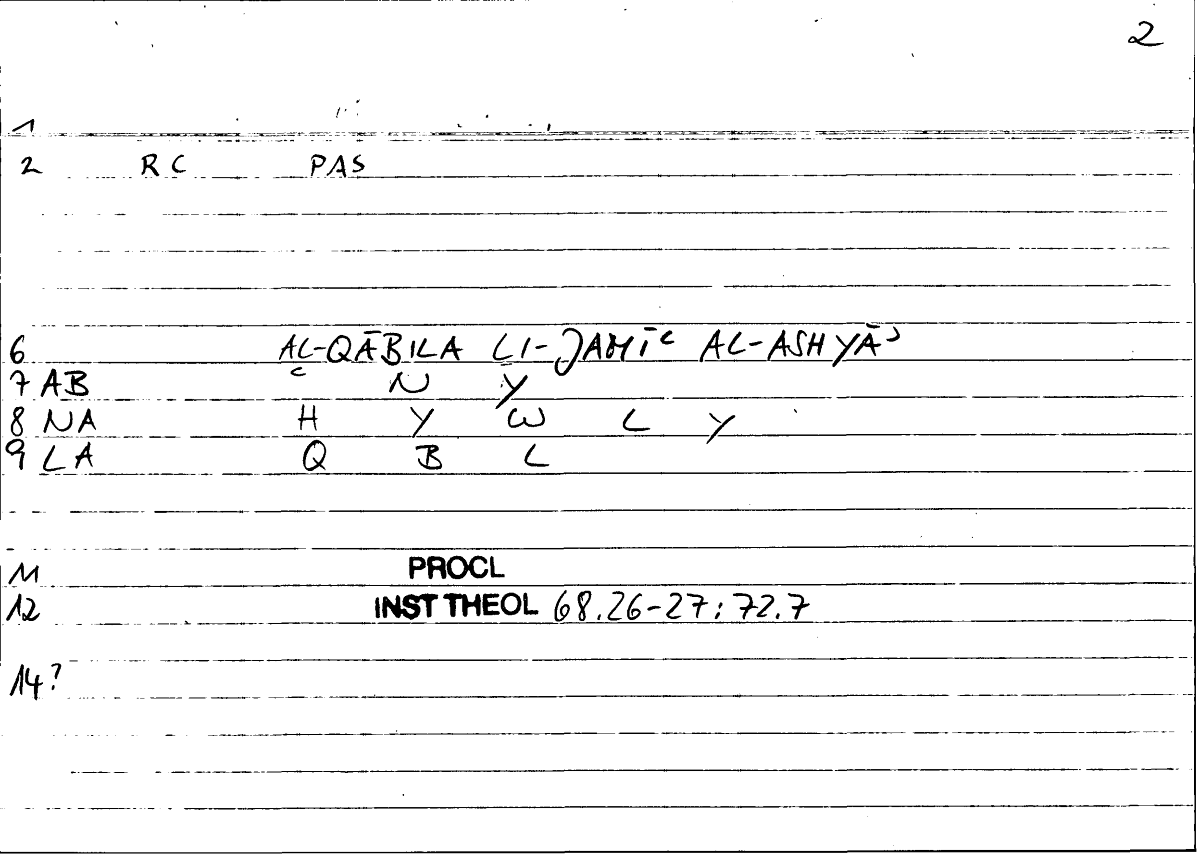 2
1
2 RC PAS
6 AL-QĀBILA LI-JAMĪʿ AL-ASHYĀʾ
7 AB ʿ N Y
8 NA H Y W L Y
9 LA Q B L
11 PROCL
12 INST THEOL 68.26-27; 72.7
14?